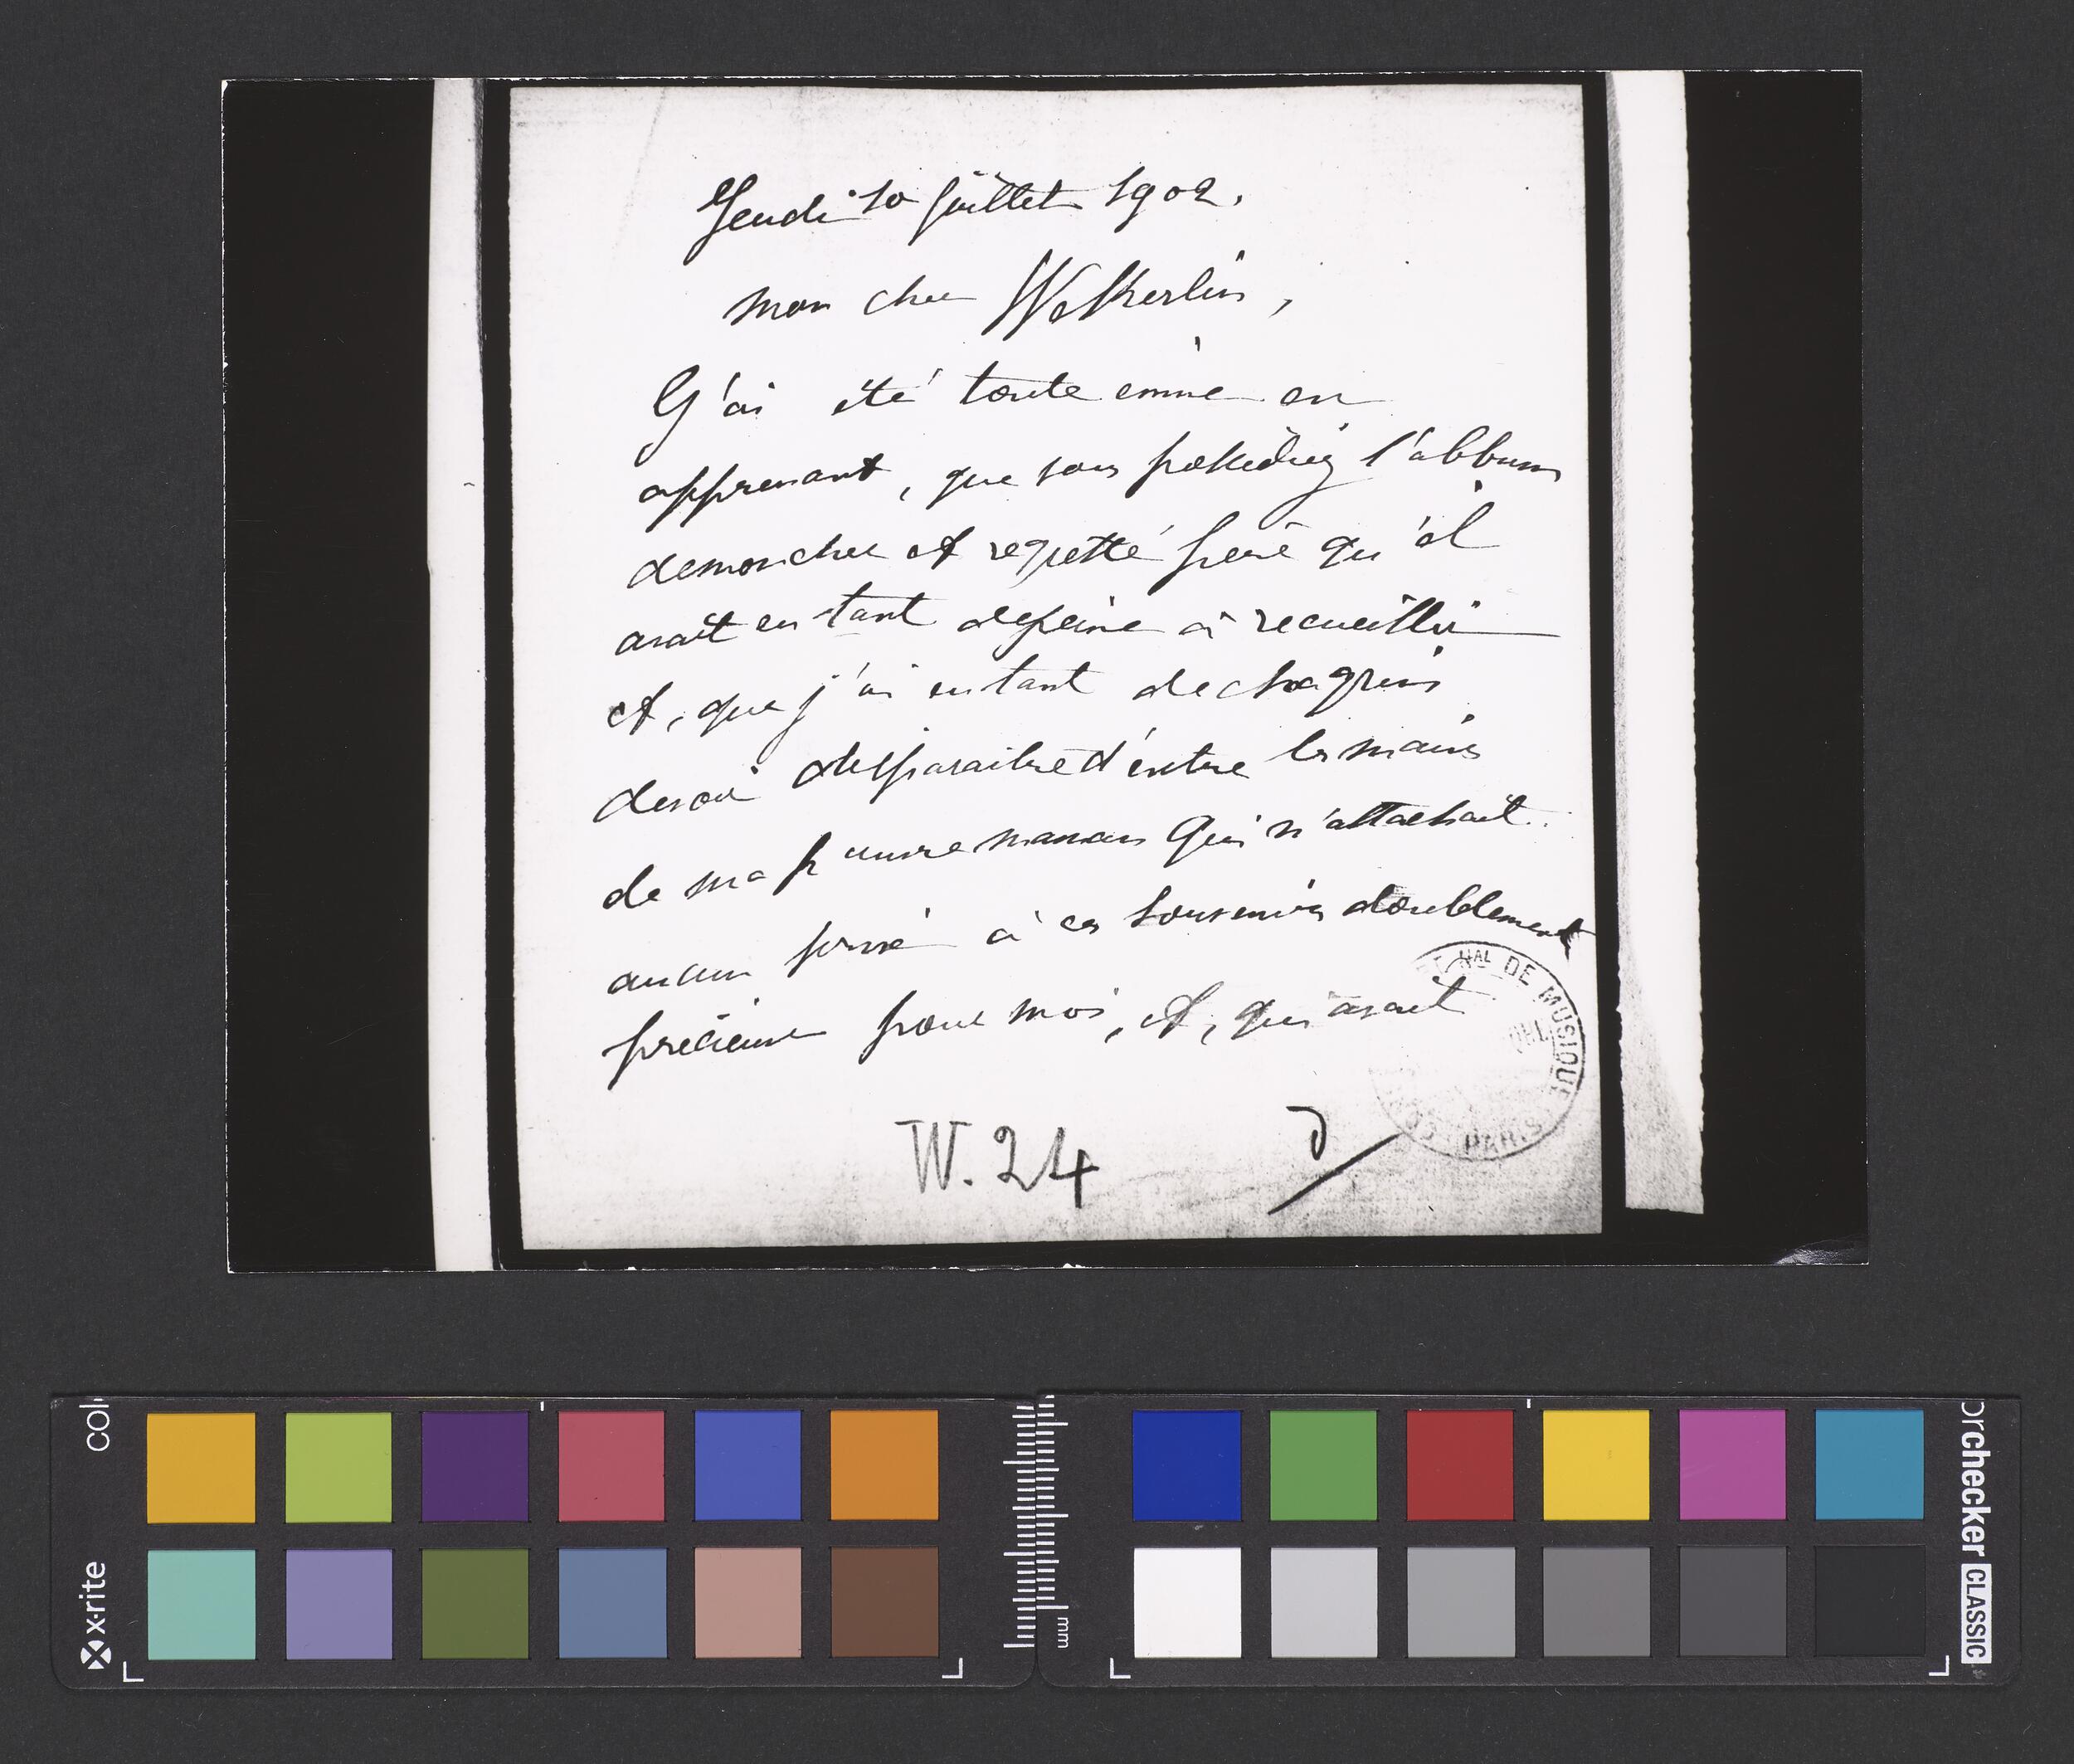 Jeudi 10 juillet 1902.
mon cher Wekerlin,
J'ai été toute émue en
apprenant, que vous possédiez l'album
de mon cher et regretté frère qu'il
avait eu tant de peine à recueillir
et, que j'ai eu tant de chagrin
de voir disparaitre d'entre les mains
de ma pauvre maman qui n'attachait
aucun prix à ces souvenirs doublement
précieux pour moi, et, qui avait
W. 24
NAL DE MUSIQUE
PARIS
col
x·rite
mm
orchecker CLASSIC